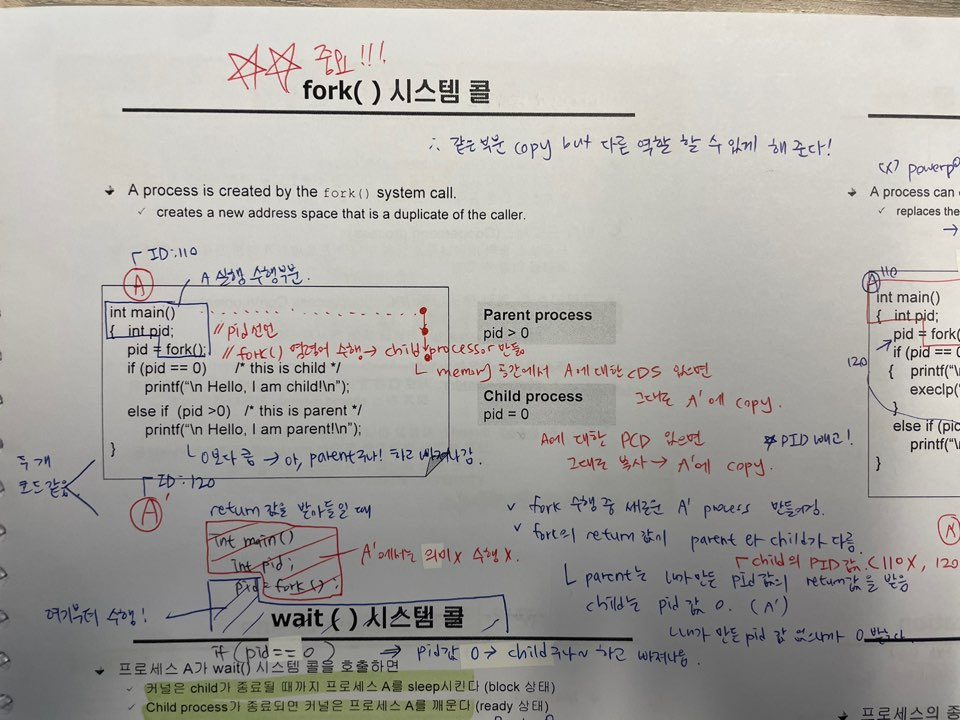 중요!!!
fork( ) 시스템 콜
∴ 같은 부분 copy but 다른 역할 할 수 있게 해 준다!
A process is created by the fork() system call.
✓ creates a new address space that is a duplicate of the caller.
ID:110
A
A 실행 수행부분.
int main()
{ int pid; // pid 선언
pid = fork(); // fork() 명령어 수행 → child processor 만듦
if (pid == 0) /* this is child */
printf("\n Hello, I am child!\n");
else if (pid >0) /* this is parent */
printf("\n Hello, I am parent!\n");
}
0보다 큼 → 아, parent구나! 하고 빠져나감
Parent process
pid > 0
ㄴ memory 공간에서 A에 대한 CDS 있으면
그대로 A'에 copy.
Child process
pid = 0
A에 대한 PCD 있으면
그대로 복사 → A'에 copy.
PID 빼고!
두 개
코드같음
ID:120
A'
return 값을 받아들일 때
int main()
int pid;
pid = fork();
A'에서는 의미 X 수행 X.
여기부터 수행!
if (pid == 0) ⇒ pid값 0 → child구나~ 하고 빠져나옴.
✓ fork 수행 중 새로운 A' process 만들어짐.
✓ fork의 return 값이 parent 와 child가 다름.
child의 PID값. (110X, 120
ㄴ parent는 내가 만든 pid 값의 return값을 받음
child는 pid 값 0. (A')
ㄴ내가 만든 pid 값 없으니까 0 받는다.
wait ( ) 시스템 콜
프로세스 A가 wait() 시스템 콜을 호출하면
✓ 커널은 child가 종료될 때까지 프로세스 A를 sleep시킨다 (block 상태)
✓ Child process가 종료되면 커널은 프로세스 A를 깨운다 (ready 상태)
A process can
✓ replaces the
→
A 110
int main()
{ int pid;
pid = fork
120
if (pid == 0
{ printf("\
execlp(
}
else if (pid
printf("\
}